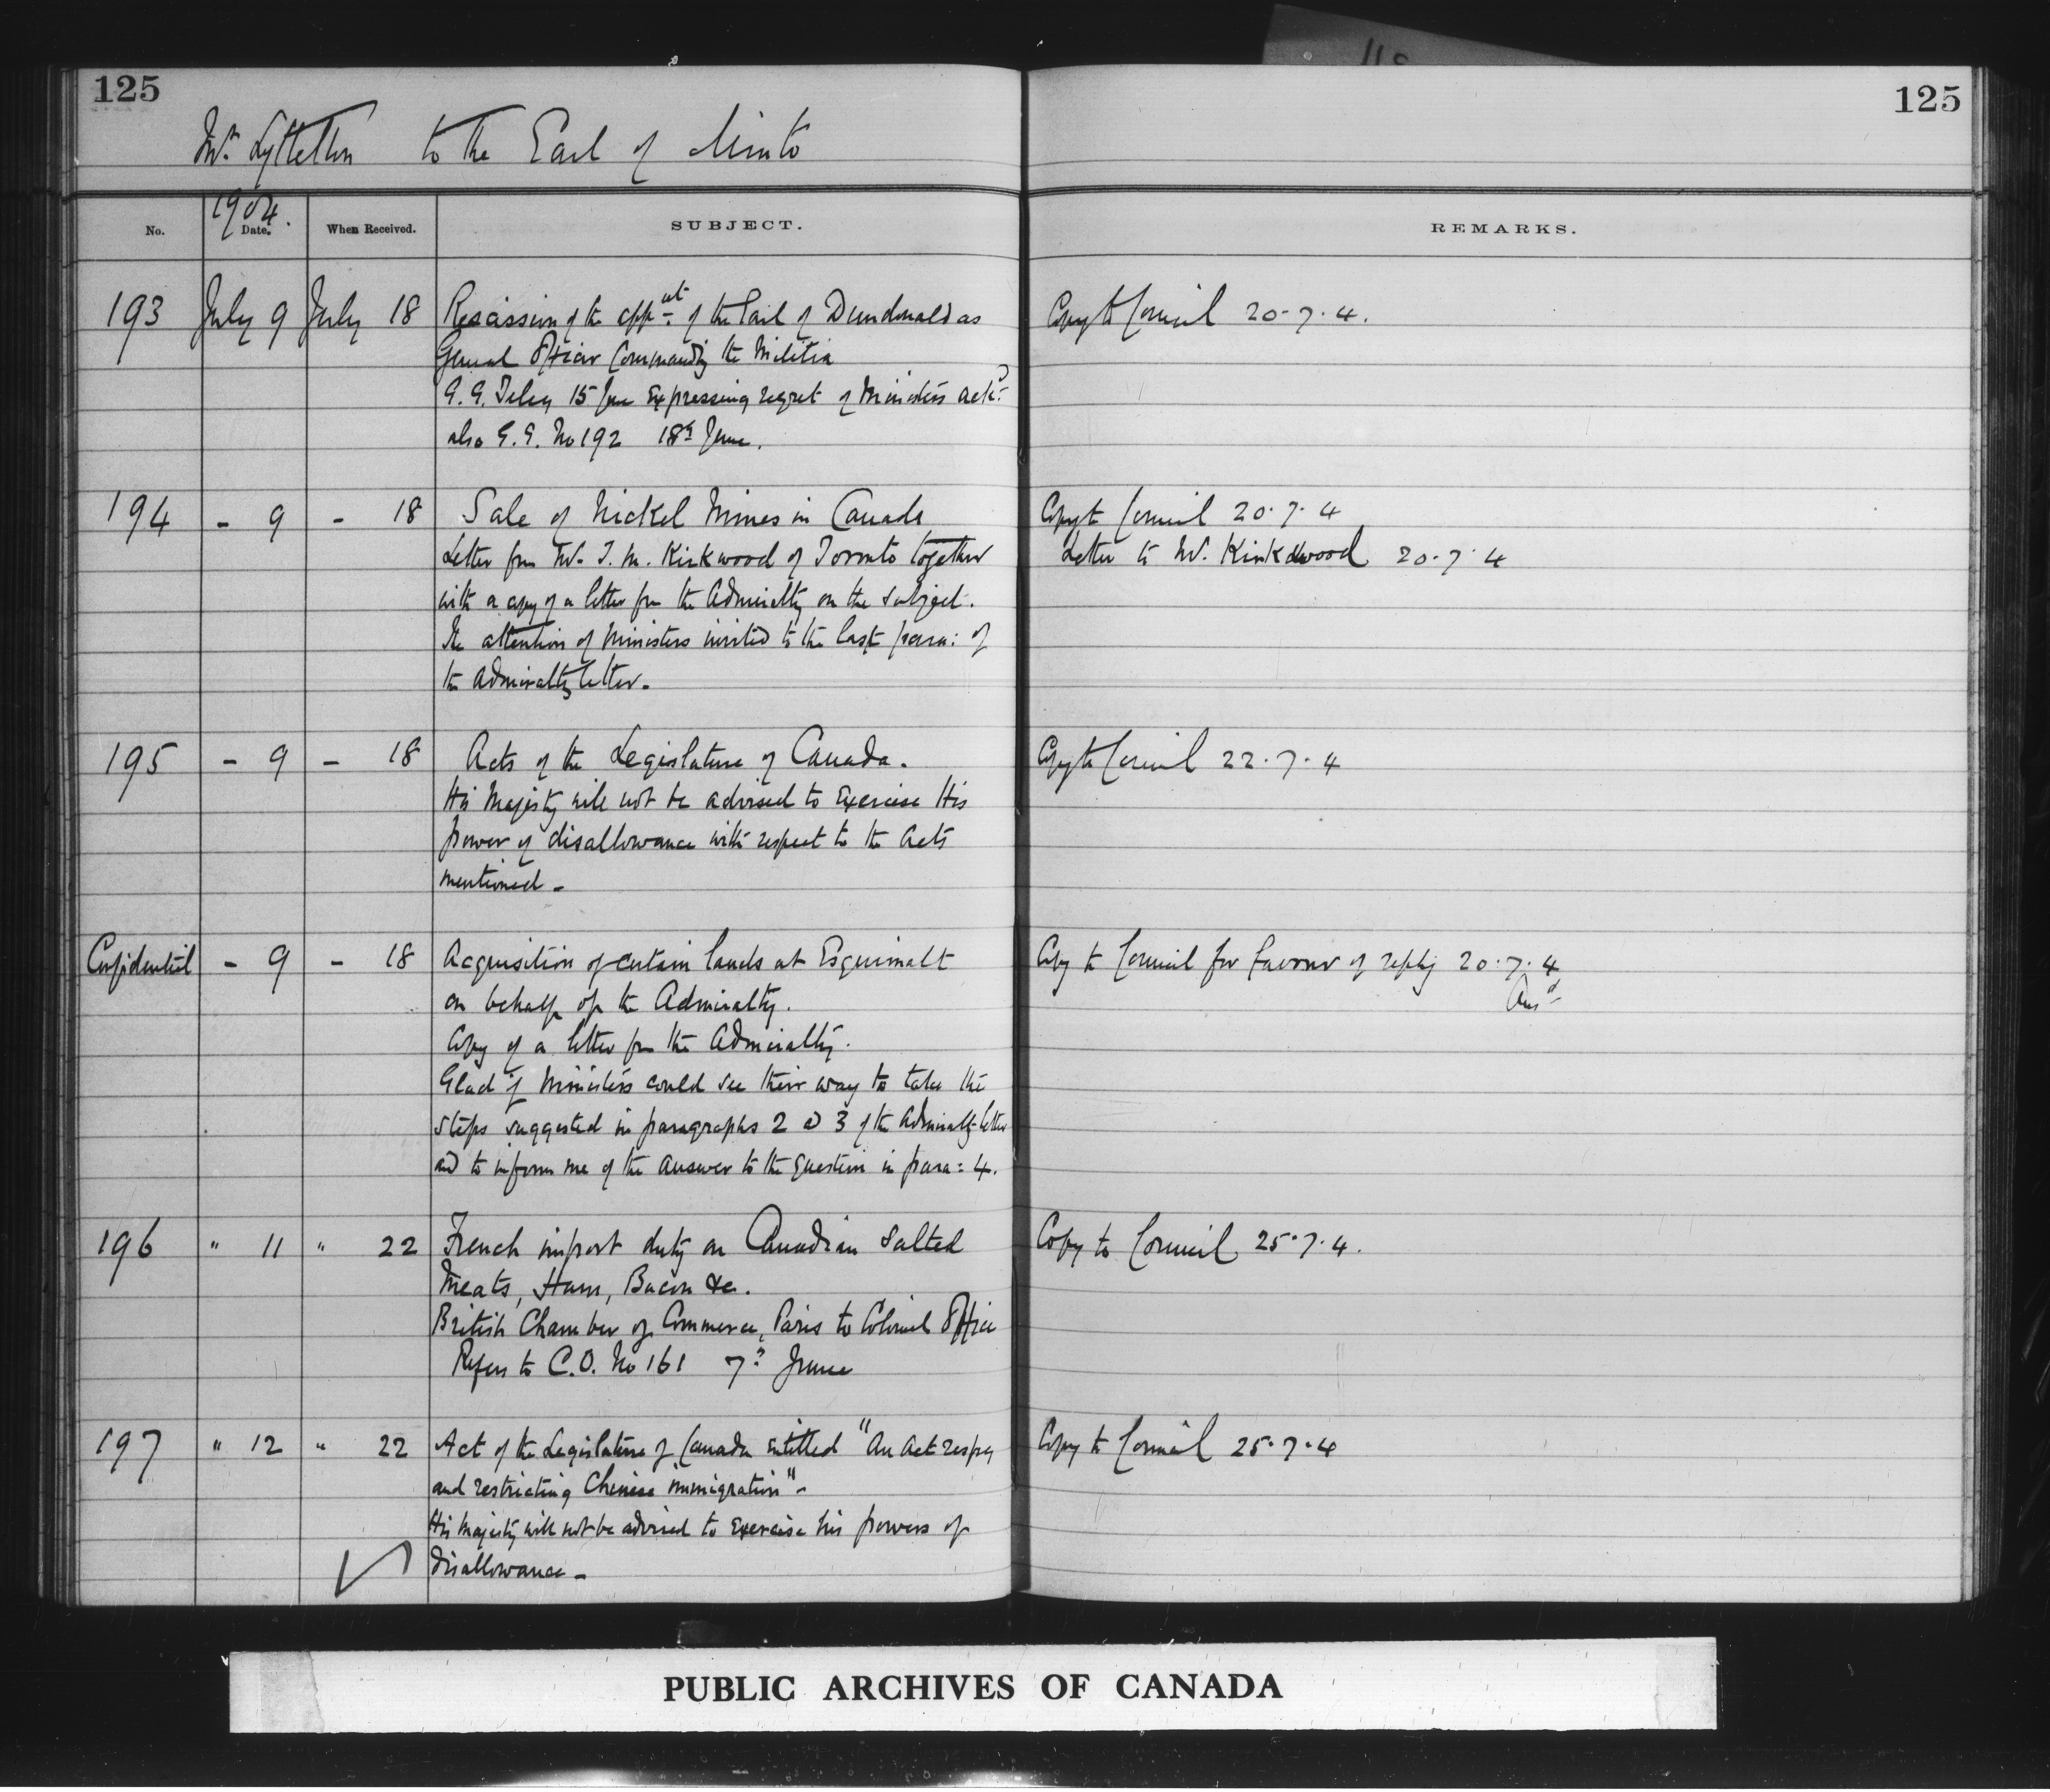 125
125
Mr. Lyttelton to the Earl of Minto
No.
1904.
Date.
When Received.
SUBJECT.
REMARKS.
193 July 9 July 18 Rescission of the appnt. of the Earl of Dundonald as
General Officer Commanding the Militia
G. G. Teleg 15 June Expressing regret of Ministers ackd.
also G. G. No 192 18th June.
Copy to Council 20-7-4.
194 - 9 - 18 Sale of Nickel Mines in Canada
Letter from Mr. T. M. Kirkwood of Toronto together
with a copy of a letter from the Admiralty on the subject.
The attention of Ministers invited to the last para: of
the Admiralty letter.
Copy to Council 20.7.4
Letter to Mr. Kirkwood 20.7.4
195 - 9 - 18 Acts of the Legislature of Canada.
His Majesty will not be advised to Exercise His
power of disallowance with respect to the Acts
mentioned -
Copy to Council 22.7.4
Confidential - 9 - 18 Acquisition of certain lands at Esquimalt
on behalf of the Admiralty.
Copy of a letter from the Admiralty.
Glad if Ministers could see their way to take the
steps suggested in paragraphs 2 & 3 of the Admiralty letter
and to inform me of the answer to the question in para: 4.
Copy to Council for favour of reply 20.7.4
Ansd
196 " 11 " 22 French import duty on Canadian salted
Meats, Ham, Bacon &c.
British Chamber of Commerce, Paris to Colonial Office
Refers to C.O. No 161 7th June
Copy to Council 25.7.4.
197 " 12 " 22 Act of the Legislature of Canada entitled "An Act respg
and restricting Chinese immigration" -
His Majesty will not be advised to Exercise his powers of
disallowance -
Copy to Council 25.7.4
PUBLIC ARCHIVES OF CANADA